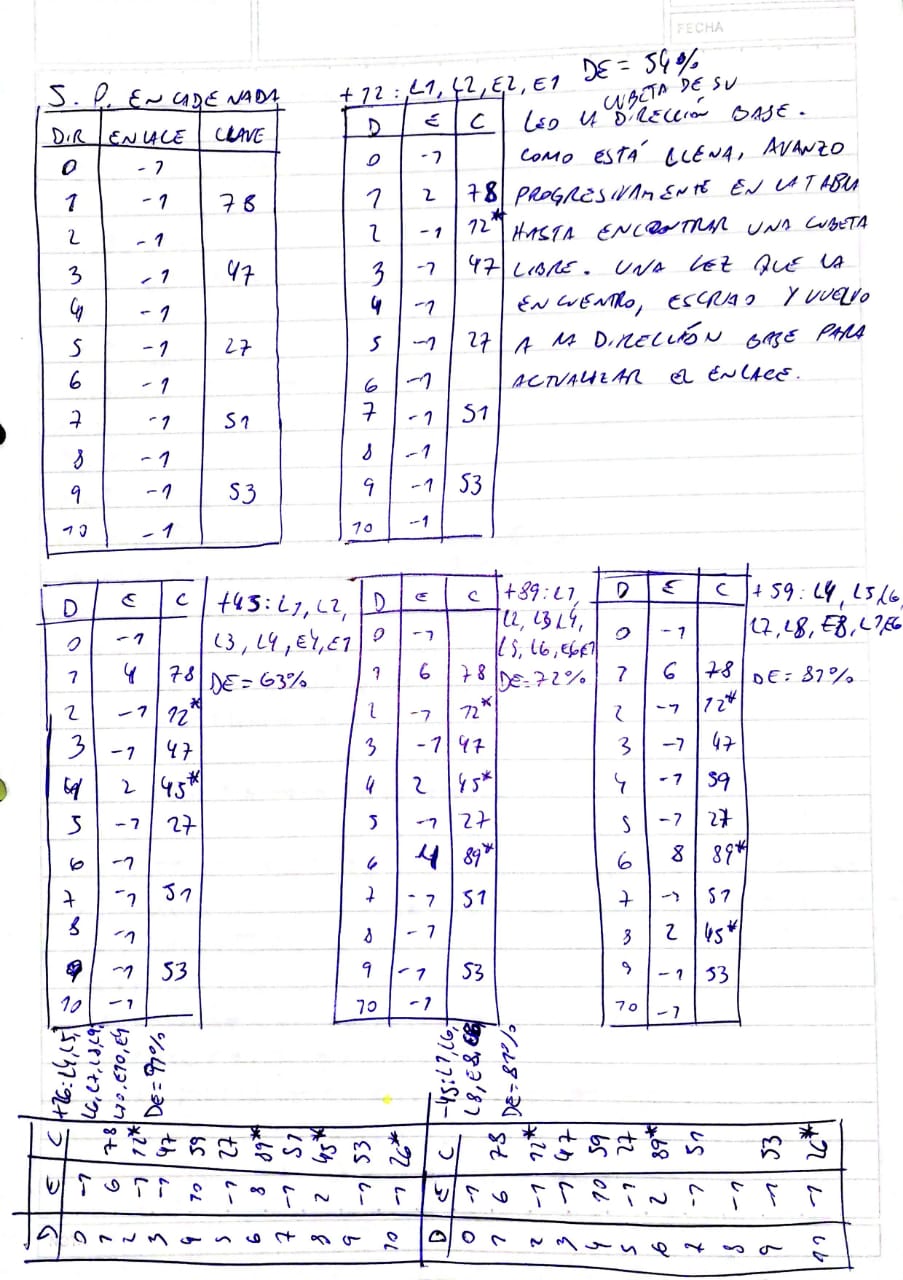 FECHA
S. P. ENCADENADA
DIR ENLACE CLAVE
0 -1
1 -1 78
2 -1
3 -1 47
4 -1
5 -1 27
6 -1
7 -1 51
8 -1
9 -1 53
10 -1
+12: L1, L2, E2, E1 DE = 54%
D E C
0 -1
1 2 78
2 -1 12*
3 -1 47
4 -1
5 -1 27
6 -1
7 -1 51
8 -1
9 -1 53
10 -1
CUBETA DE SU
LEO LA DIRECCIÓN BASE.
COMO ESTÁ LLENA, AVANZO
PROGRESIVAMENTE EN LA TABLA
HASTA ENCONTRAR UNA CUBETA
LIBRE. UNA VEZ QUE LA
ENCUENTRO, ESCRIBO Y VUELVO
A LA DIRECCIÓN BASE PARA
ACTUALIZAR EL ENLACE.
D E C
0 -1
1 4 78
2 -1 12*
3 -1 47
4 2 45*
5 -1 27
6 -1
7 -1 51
8 -1
9 -1 53
10 -1
+45: L1, L2,
L3, L4, E4, E1
DE = 63%
D E C
0 -1
1 6 78
2 -1 12*
3 -1 47
4 2 45*
5 -1 27
6 4 89*
7 -1 51
8 -1
9 -1 53
10 -1
+89: L1,
L2, L3 L4,
L5, L6, E6 E1
DE = 72%
D E C
0 -1
1 6 78
2 -1 12*
3 -1 47
4 -1 59
5 -1 27
6 8 89*
7 -1 51
8 2 45*
9 -1 53
10 -1
+59: L4, L5, L6
L7, L8, E8, L1, E6
DE = 81%
+26: L4, L5,
L6, L7, L8, L9,
L10, E10, E4
DE = 91%
D E C
0 -1
1 6 78
2 -1 12*
3 -1 47
4 10 59
5 -1 27
6 8 89*
7 -1 51
8 2 45*
9 -1 53
10 -1 26*
-45: L1, L6,
L8, E8, E6
DE = 81%
D E C
0 -1
1 6 78
2 -1 12*
3 -1 47
4 10 59
5 -1 27
6 2 89*
7 -1 51
8 -1
9 -1 53
11 -1 26*